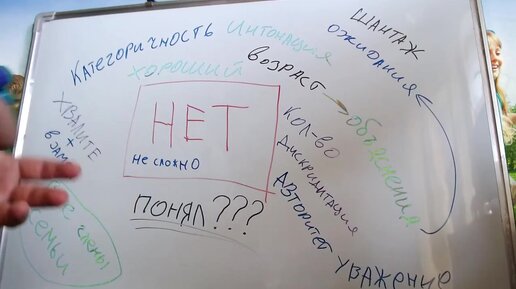 Шантаж
ожидания
Категоричность
Интонация
хороший
возраст
НЕТ
не сложно
ХВАЛИТЕ
+
в зам
Кол-во
объяснения
Дискримитация
Авторитет
Уважение
ПОНЯЛ???
члены
емьи